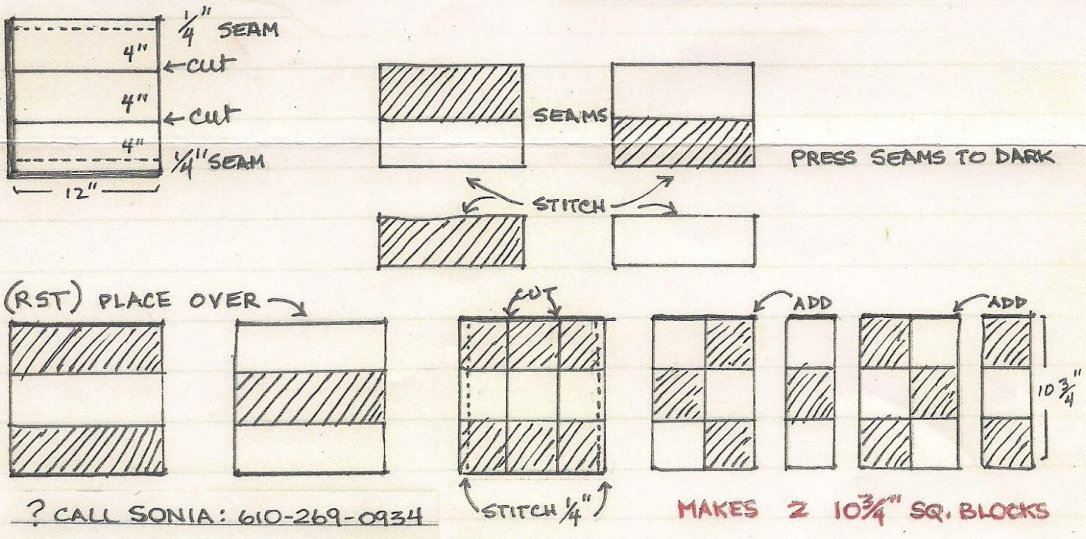 1/4" SEAM
4"
← CUT
4"
← CUT
4"
1/4" SEAM
12"
SEAMS
PRESS SEAMS TO DARK
STITCH
(RST) PLACE OVER
CUT
ADD
ADD
10 3/4"
STITCH 1/4"
? CALL SONIA: 610-269-0934
MAKES 2 10 3/4" SQ. BLOCKS